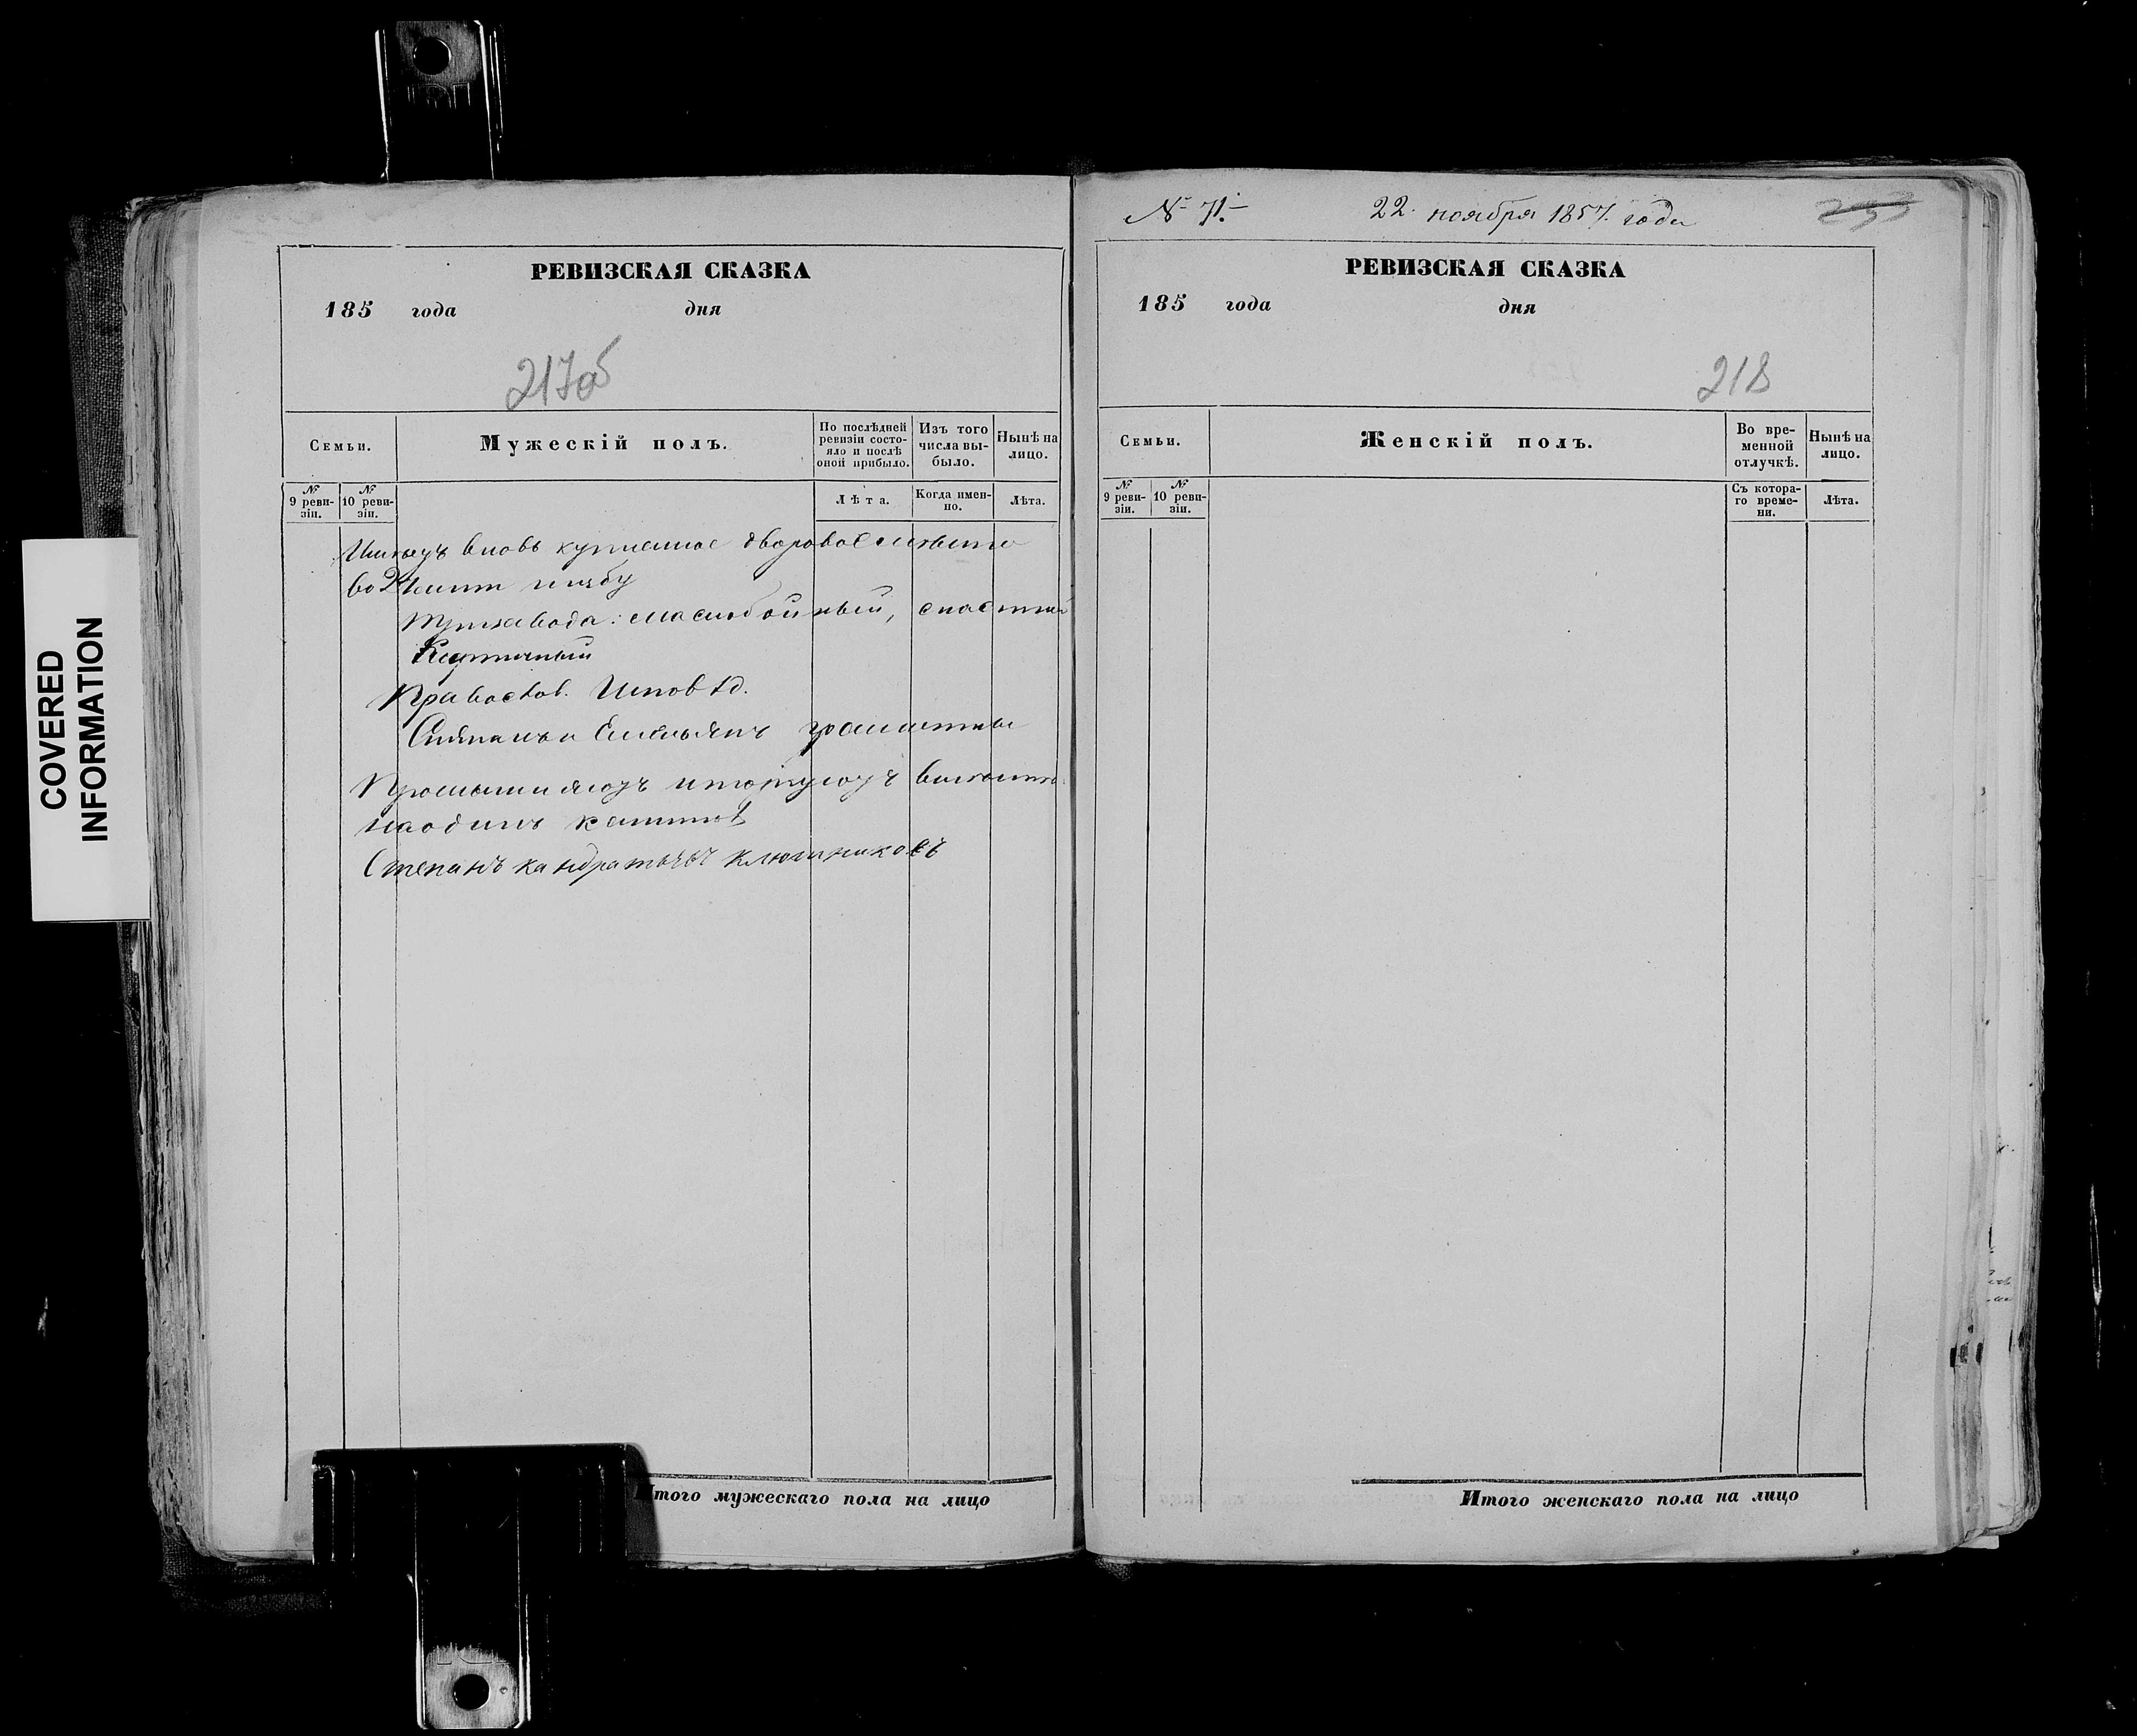 COVERED
INFORMATION
РЕВИЗСКАЯ СКАЗКА
185 года дня
217об
Семьи.
Мужескій полъ.
По послѣдней ревизіи состояло и послѣ оной прибыло.
Изъ того числа выбыло.
Нынѣ на лицо.
№ 9 ревизіи.
№ 10 ревизіи.
Лѣта.
Когда именно.
Лѣта.
Имѣютъ вновь купленное дворовое мѣсто
во 2й части избу
три завода: маслобойный,
Кирпичный
Православ. Исповѣд.
Степанъ и Емельянъ грамотны
Промышляютъ и торгуютъ вмѣсте
на одинъ капитал
Степанъ кандратьевъ ключниковъ
Итого мужескаго пола на лицо
№ 71.
22. ноября 1857. года
РЕВИЗСКАЯ СКАЗКА
185 года дня
218
Семьи.
Женскій полъ.
Во временной отлучкѣ.
Нынѣ на лицо.
№ 9 ревизіи.
№ 10 ревизіи.
Съ котораго времени.
Лѣта.
Итого женскаго пола на лицо